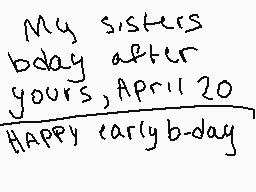 My sisters
bday after
yours, April 20
HAPPY early b-day